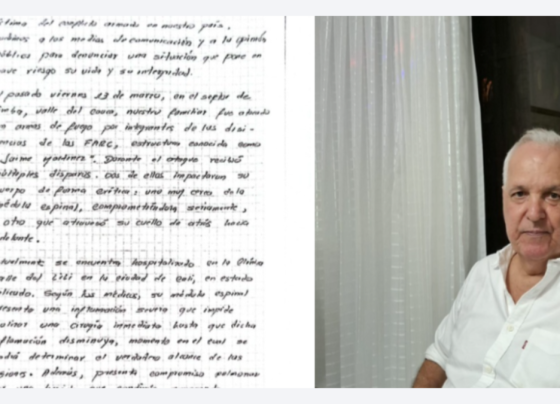 víctima del conflicto armado en nuestro país.
a los medios de comunicación y a la opinión
pública para denunciar una situación que pone en
grave riesgo su vida y su integridad.
El pasado viernes 13 de marzo, en el sector de
valle del cauca, nuestro familiar fue atacado
con armas de fuego por integrantes de las disi-
dencias de las FARC, estructura conocida como
"Jaime Martínez". Durante el ataque recibió
múltiples disparos, dos de ellos impactaron su
cuerpo de forma crítica; uno muy cerca de la
médula espinal, comprometiéndola seriamente,
y otro que atravesó su cuello de atrás hacia
adelante.
Actualmente se encuentra hospitalizado en la Clínica
Valle del Lili en la ciudad de Cali, en estado
delicado. Según los médicos, su médula espinal
presenta una inflamación severa que impide
realizar una cirugía inmediata hasta que dicha
inflamación disminuya, momento en el cual se
podrá determinar el verdadero alcance de las
lesiones. Además, presenta compromiso pulmonar